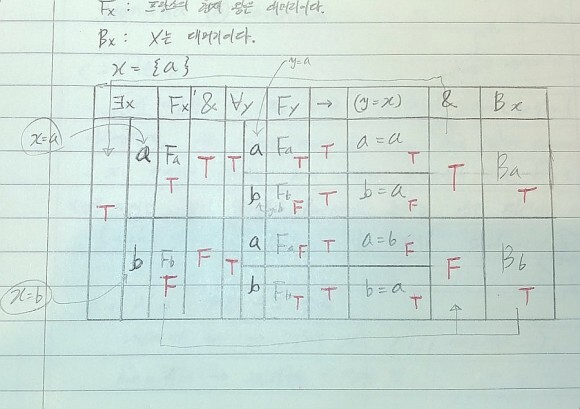 Fx : 프랑스의 현재 왕은 대머리이다.
Bx : X는 대머리이다.
x = {a}
y=a
∃x Fx & ∀y Fy → (y=x) & Bx
x=a a Fa T T T a Fa T T a=a T T Ba T
T b Fb F T b=a F
b Fb F F T a Fa F T a=b F F Bb T
x=b b Fb T T b=a T